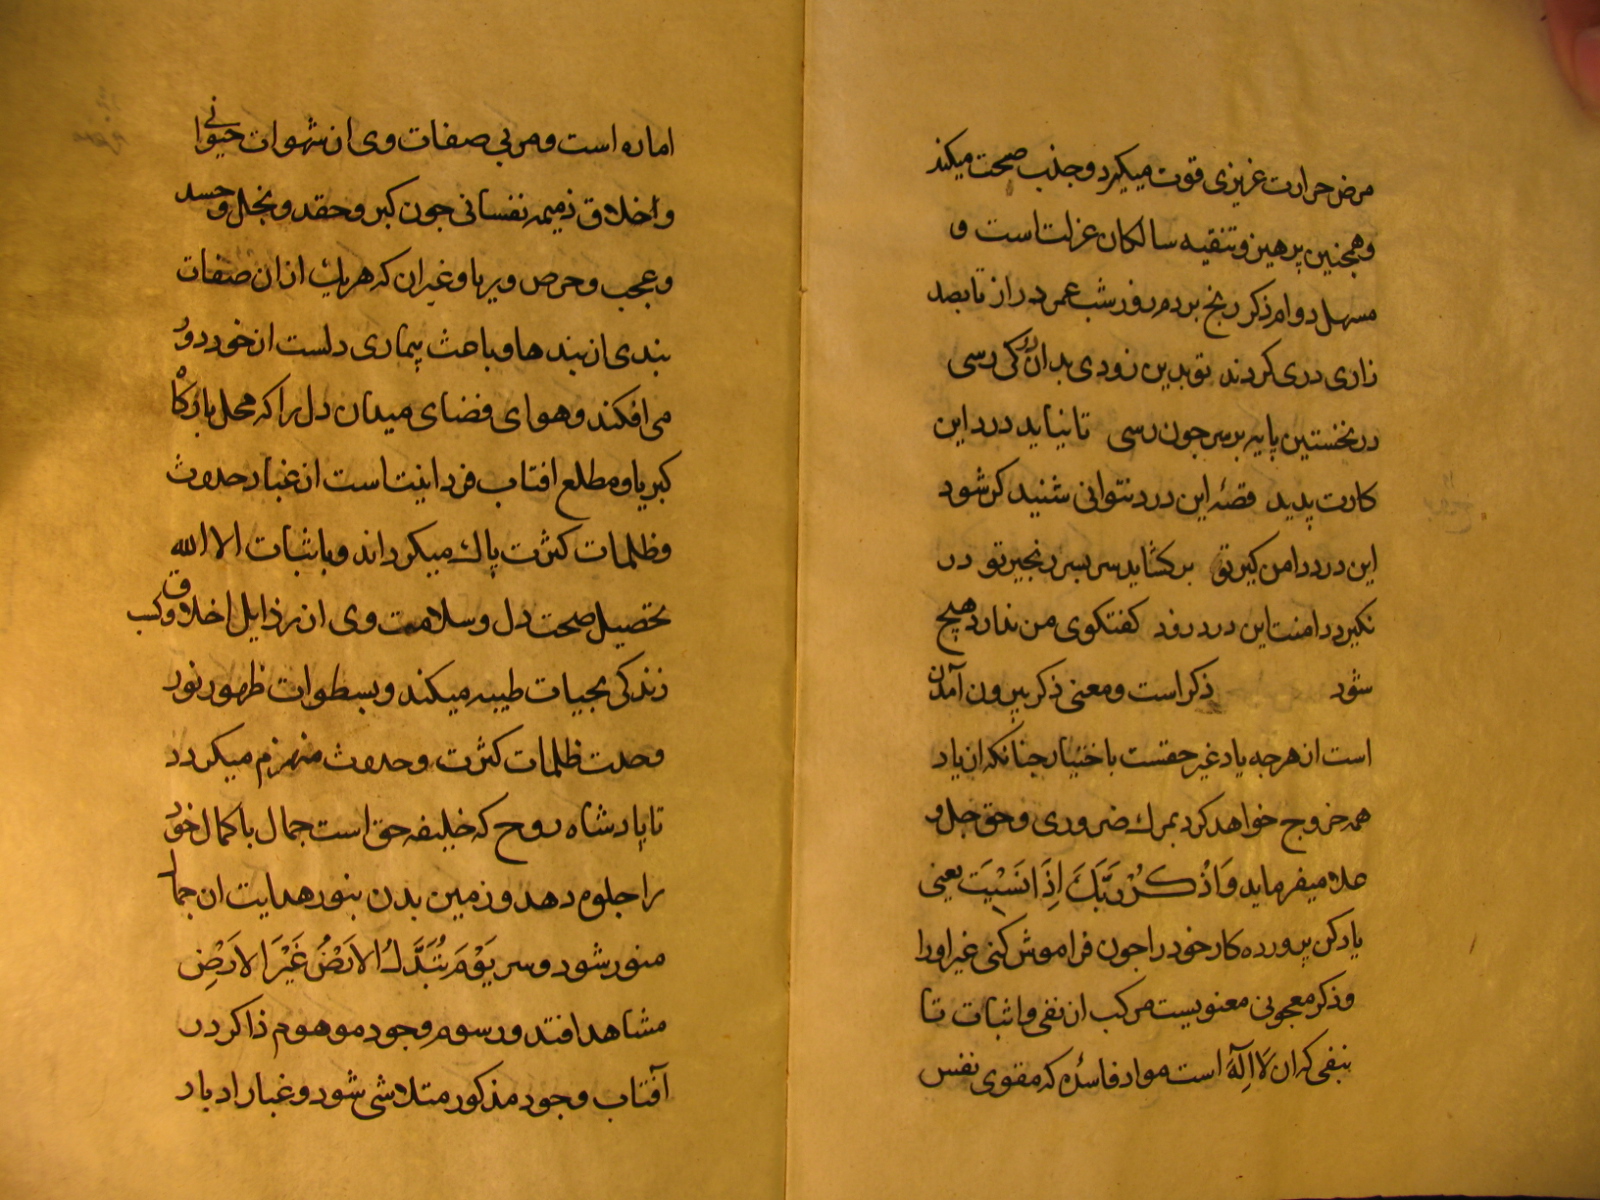 مرض حرارت غریزی قوت میگیرد و جذب صحت میکند
و همچنین پرهیز و تنقیه سالکان عزلت است و
مسهل دوام ذکر رنج بردم روز و شب عمر دراز تا بصد
زاری دری کردند تو بدین زودی بدان در کی رسی
در نخستین پایه بر سر چون رسی تا نیاید درد این
کارت پدید قصه این درد نتوانی شنید کر شود
این درد دامن کیر تو برکشاید سر بسر زنجیر تو ور
نکیرد دامنت این درد زود کفتکوی من ندارد هیچ
سود ذکر است و معنی ذکر بیرون آمدن
است از هر چه یاد غیر حقست باختیار چنانکه از یاد
همه خروج خواهد کرد بمرک ضروری و حق جل و
علا میفرماید وَاذْکُرْ رَبَّکَ اِذَا نَسَیْتَ یعنی
یاد کن پرورده کار خود را جون فراموش کنی غیر او را
و ذکر معجونی معنویست مرکب از نفی و اثبات تا
بنفی که ان لَا اِلٰهَ است مواد فاسده که مقوی نفس
اماره است و مربی صفات وی از شهوات حیوانی
و اخلاق ذمیمه نفسانی جون کبر و حقد و بخل و حسد
و عجب و حرص و ریا و غیر ان که هر یک از ان صفات
بندی از بندها و باعث بیماری دلست از خود دور
می افکند و هوای فضای میدان دل را که محل بارکاه
کبریا و مطلع افتاب فردانیت است از غبار حدوث
و ظلمات کثرت پاک میکرداند و باثبات الا الله
تحصیل صحت دل و سلامت وی از رذایل اخلاق و کسب
زندکی بحیات طیبه میکند و بسطوات ظهور نور
وحدت ظلمات کثرت و حدوث منهزم میکردد
تا پادشاه روح که خلیفه حق است جمال با کمال خود
را جلوه دهد و زمین بدن بنور هدایت ان جمال
منور شود و سر یَوْمَ تُبَدَّلُ الاَرْضُ غَیْرَ الاَرْضِ
مشاهد افتد و رسوم وجود موهوم ذاکر در
آفتاب وجود مذکور متلاشی شود و غبار ادبار